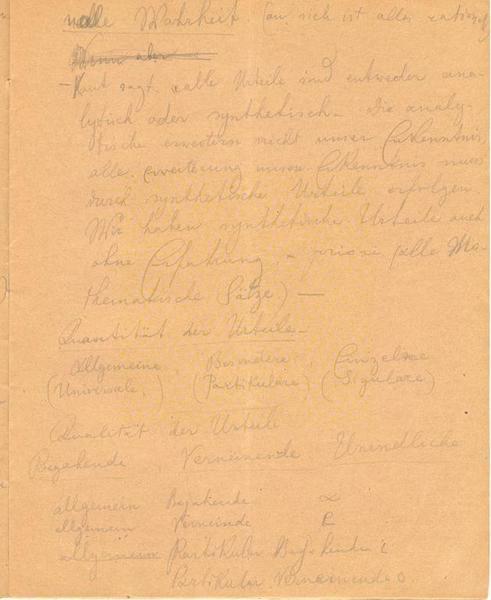 nelle Wahrheit. (an sich ist alles rational)
Wenn aber
– Kant sagt, alle Urteile sind entweder ana-
lytisch oder synthetisch – die analy-
tische erweitern nicht unser Erkenntnis,
alle erweiterung unserer Erkenntnis muss
durch synthetische Urteile erfolgen.
Wir haben synthetische Urteile auch
ohne Erfahrung, a – priori (alle Ma-
thematische Sätze) —
Quantität der Urteile –
Allgemeine, Besondere, Einzelne
(Universale,) (Partikuläre) (Siguläre)
Qualität der Urteile
Bejahende, Verneinende Unendliche
allgemein Bejahende a
allgemein Verneinde e
allgemeine Partikular Bejahende i
Partikular Verneinende o